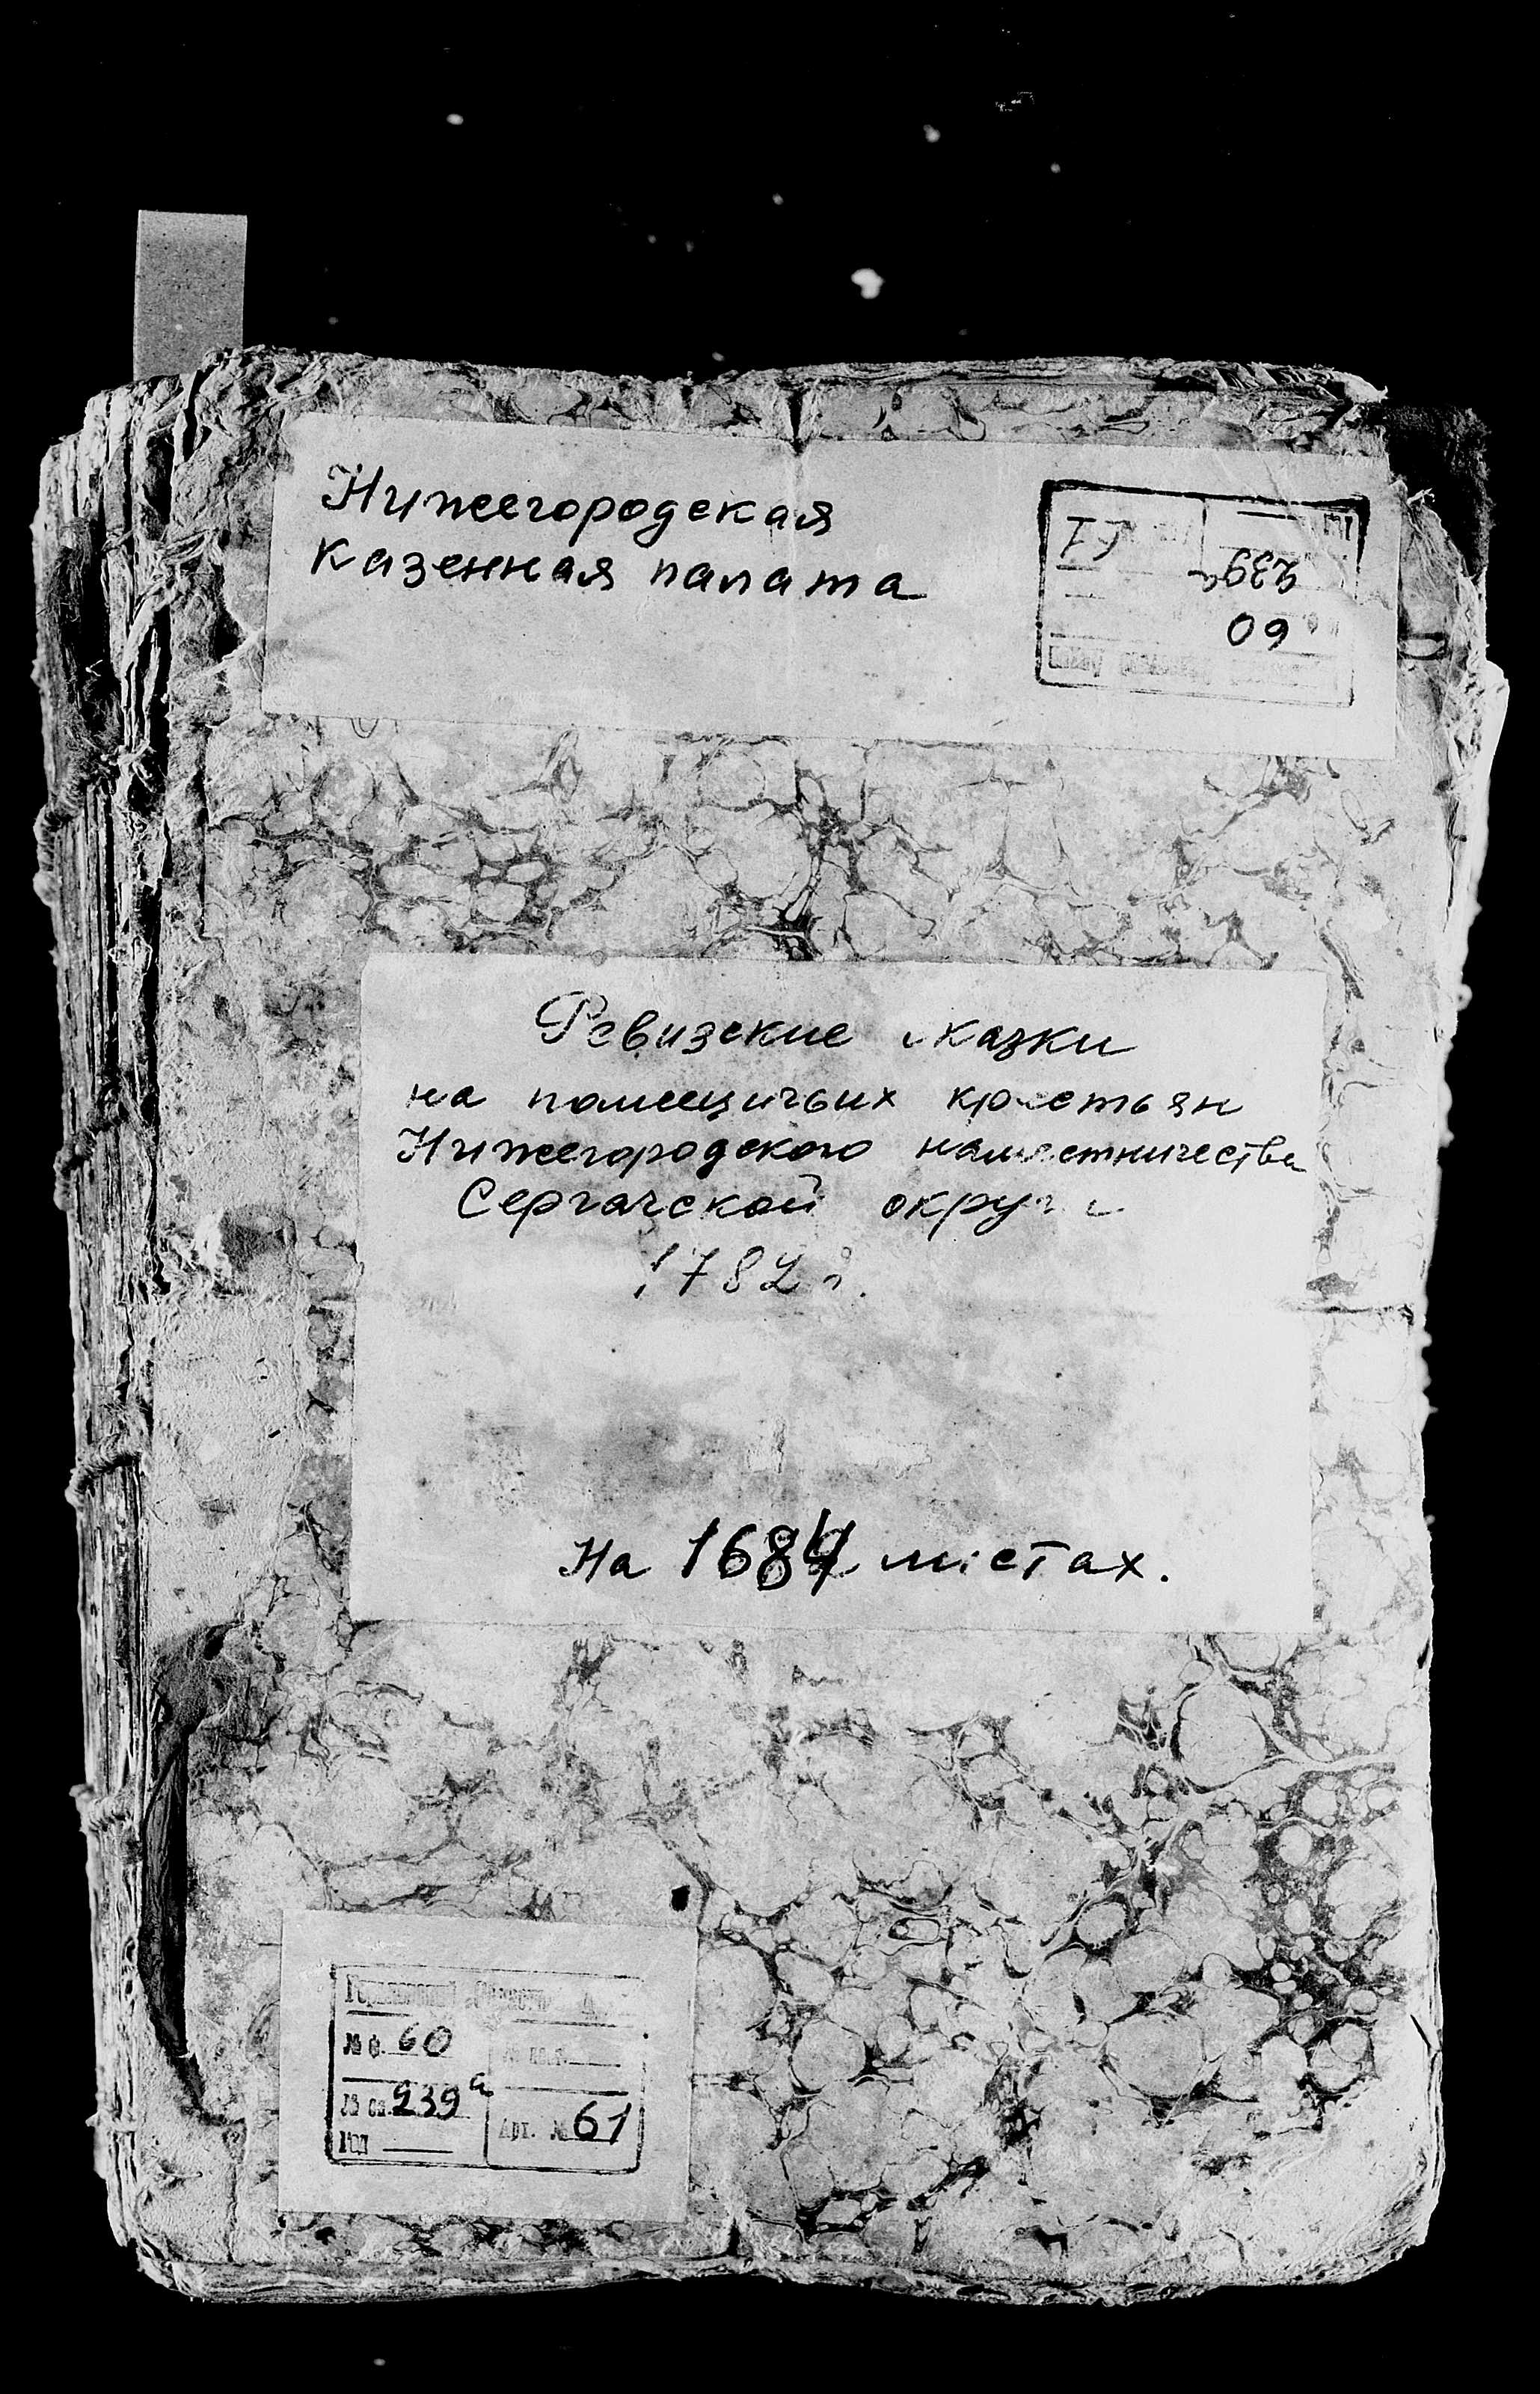 Нижегородская
казенная палата
239а
60
Ревизские сказки
на помещичьих крестьян
Нижегородского наместничества
Сергачской округи
1782 г.
На листах.
№ ф. 60
№ оп. 239а
Арт. № 61
Год